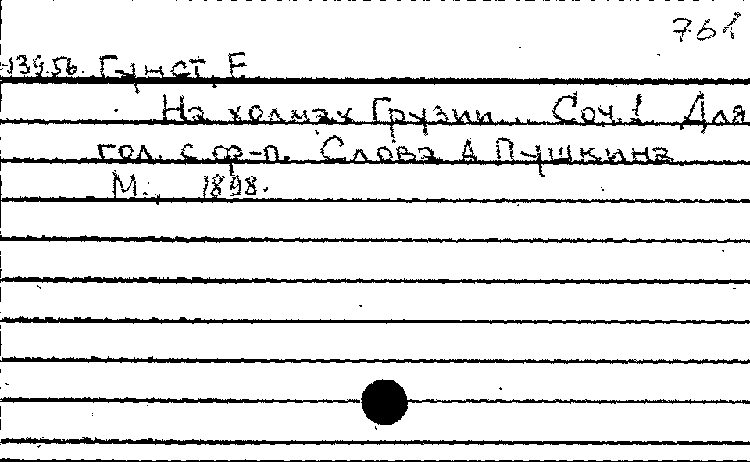 761
13956. Гунст, Е.
На холмах Грузии... Соч.1 Для
гол. с ф-п. Слова А Пушкина
М., 1898.